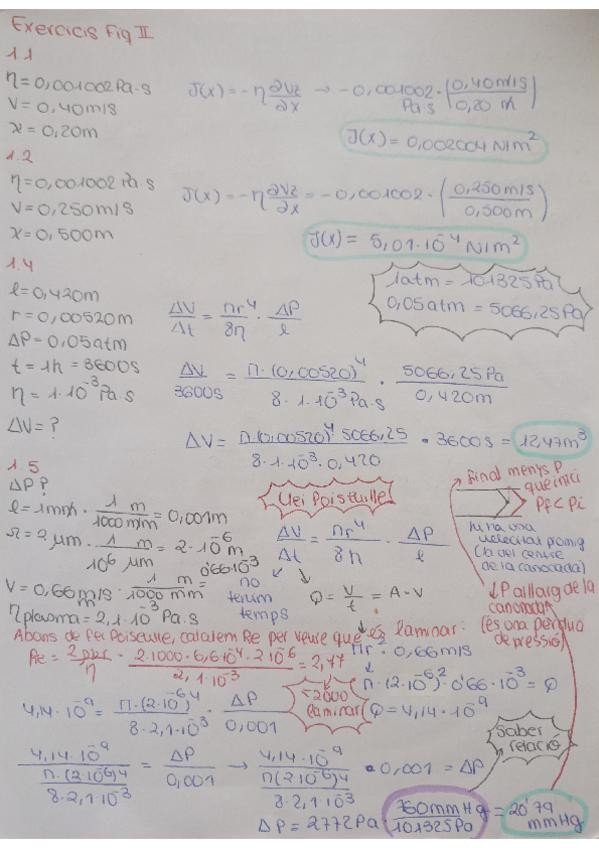 Exercicis Fig II
1.1
η=0,001002 Pa·s
v=0,40m/s
x=0,20m
J(x)=-η ∂Vz/∂x → -0,001002 Pa·s · (0,40m/s / 0,20 m)
J(x)=0,002004 N/m²
1.2
η=0,001002 Pa·s
v=0,250m/s
x=0,500m
J(x)=-η ∂Vz/∂x = -0,001002 · (0,250m/s / 0,500m)
J(x)= 5,01·10⁻⁴ N/m²
1.4
l=0,420m
r=0,00520m
ΔP=0,05atm
t=1h=3600s
η=1·10⁻³ Pa·s
ΔV=?
1atm=101325Pa
0,05atm=5066,25Pa
ΔV/Δt = πr⁴/8η · ΔP/l
ΔV/3600s = π·(0,00520)⁴ / 8·1·10⁻³ Pa·s · 5066,25Pa / 0,420m
ΔV= π·(0,00520)⁴ 5066,25 / 8·1·10⁻³·0,420 · 3600s = 12,47m³
1.5
ΔP?
l=1mm · 1 m / 1000 mm = 0,001m
r=2 μm · 1 m / 10⁶ μm = 2·10⁻⁶ m
v=0,66m/s · 1 m / 1000 mm = 0'66·10⁻³
m
ηplasma=2,1·10⁻³ Pa·s
Llei Poiseuille
ΔV/Δt = πr⁴/8η · ΔP/l
no tenim temps
Q = V/t = A·v
final menys P que inici
Pf<Pi
hi ha una velocitat promig (la del centre de la canonada)
↓P al llarg de la canonada (és una pèrdua de pressió)
Abans de fer Poiseuille, calculem Re per veure que és laminar:
Re = 2ρvr/η · 2·1000·6,6·10⁻⁴·2·10⁻⁶ / 2,1·10⁻³ = 2,77
<2000 laminar
πr² · 0,66m/s
π·(2·10⁻⁶)²·0'66·10⁻³ = Q
Q=4,14·10⁻⁹
4,14·10⁻⁹ = π·(2·10⁻⁶)⁴ / 8·2,1·10⁻³ · ΔP / 0,001
4,14·10⁻⁹ / (π·(2·10⁻⁶)⁴ / 8·2,1·10⁻³) = ΔP / 0,001 → 4,14·10⁻⁹ / (π(2·10⁻⁶)⁴ / 8·2,1·10⁻³) · 0,001 = ΔP
Saber relació
ΔP=2772Pa · 760mmHg / 101325Pa = 20'79 mmHg